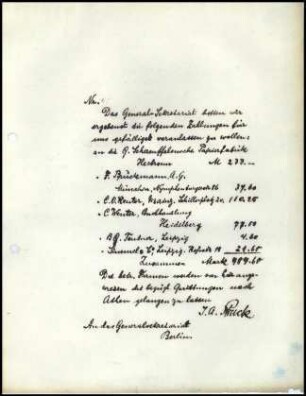 No:
Das General-Sekretariat bitten wir
ergebenst die folgenden Zahlungen für
uns gefälligst veranlassen zu wollen:
an die G. Schaeuffelensche Papierfabrik
Heilbronn M 233.—
" F. Bruckmann, A.G.
München, Nymphenburgerstr. 39.60
" C. Winter, Buchhandlung
Heidelberg 77.00
" B.G. Teubner, Leipzig 4.20
Leipzig,
Zusammen Mark
Die betr. Firmen worden von uns ange-
wiesen die bezügl. Quittungen nach
Athen gelangen zu lassen
I. A. Struck
An das Generalsekretariat
Berlin